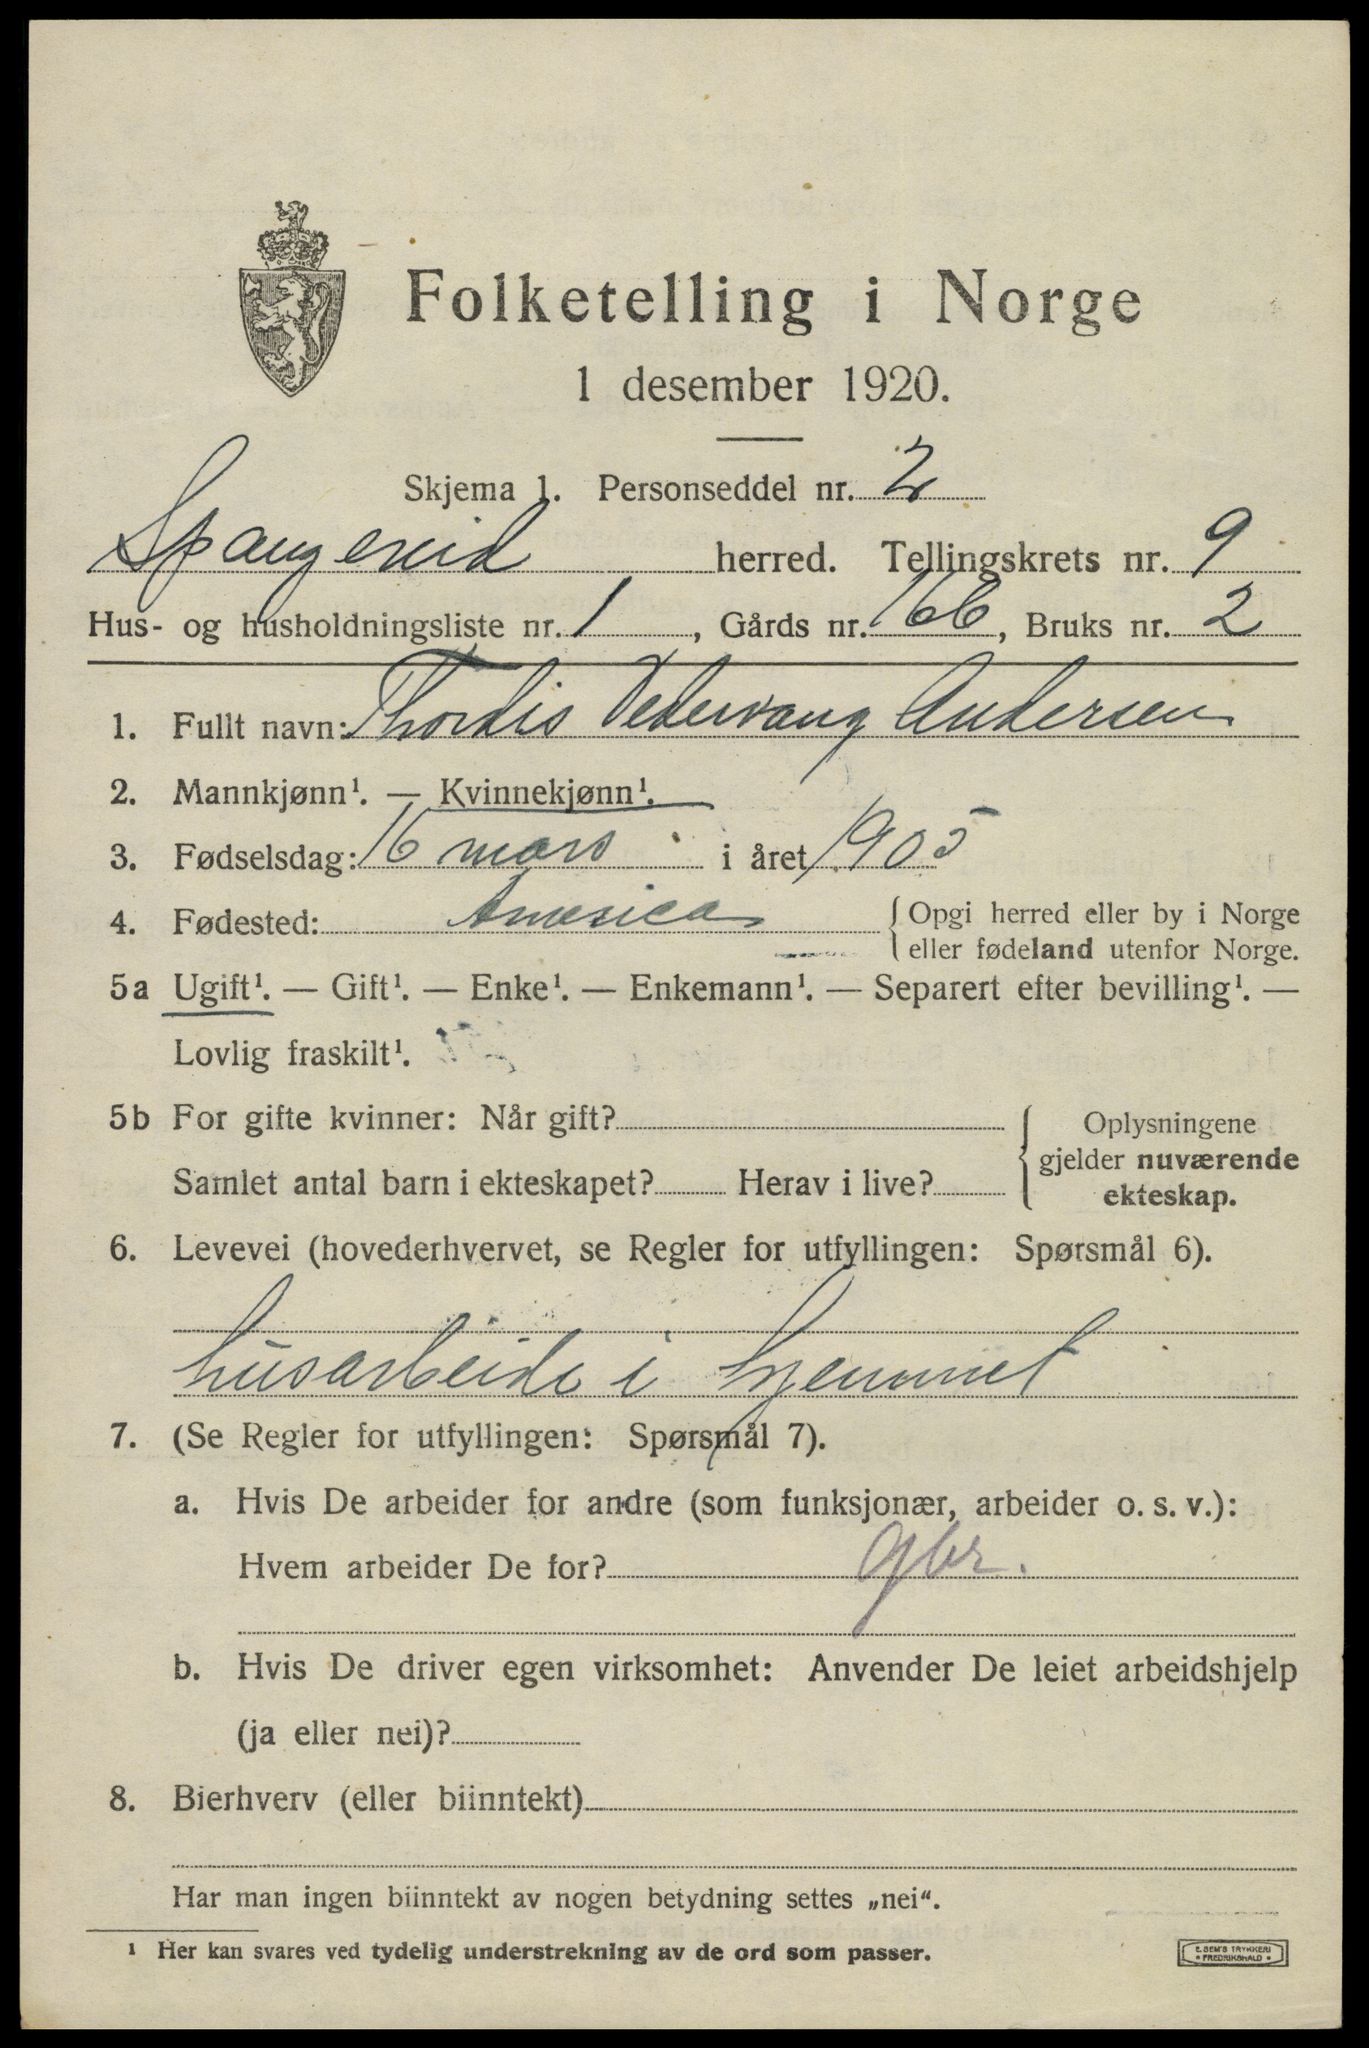 Folketelling i Norge
1 desember 1920.
Skjema 1. Personseddel nr. 2
Spangereid herred. Tellingskrets nr. 9
Hus- og husholdningsliste nr. 1, Gårds nr. 166, Bruks nr. 2
1. Fullt navn: Thordis Vedervang Andersen
2. Mannkjønn¹. — Kvinnekjønn¹.
3. Fødselsdag: 16 mars i året 1905
4. Fødested: America { Opgi herred eller by i Norge
eller fødeland utenfor Norge.
5a Ugift¹. — Gift¹. — Enke¹. — Enkemann¹. — Separert efter bevilling¹. —
Lovlig fraskilt¹.
5b For gifte kvinner: Når gift? { Oplysningene
gjelder nuværende
Samlet antal barn i ekteskapet? Herav i live? ekteskap.
6. Levevei (hovederhvervet, se Regler for utfyllingen: Spørsmål 6).
husarbeide i hjemmet
7. (Se Regler for utfyllingen: Spørsmål 7).
a. Hvis De arbeider for andre (som funksjonær, arbeider o. s. v.):
Hvem arbeider De for? gbr.
b. Hvis De driver egen virksomhet: Anvender De leiet arbeidshjelp
(ja eller nei)?
8. Bierhverv (eller biinntekt)
Har man ingen biinntekt av nogen betydning settes „nei“.
¹ Her kan svares ved tydelig understrekning av de ord som passer.
E. SEM'S TRYKKERI
FREDRIKSHALD